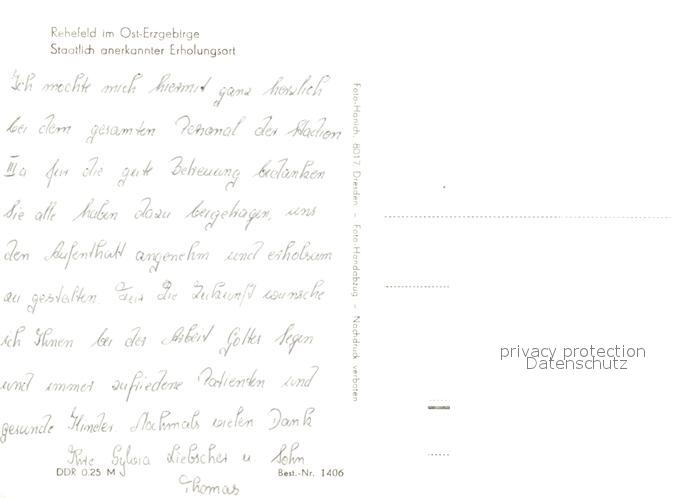 Rehefeld im Ost-Erzgebirge
Staatlich anerkannter Erholungsort
Ich mochte mich hiermit ganz herzlich
bei dem gesamten Personal der Station
III a für die gute Betreuung bedanken
Sie alle haben dazu beigetragen, uns
den Aufenthalt angenehm und erholsam
zu gestalten. Für die Zukunft wunsche
ich Ihnen bei der Arbeit Gottes Segen
und immer zufriedene Patienten und
gesunde Kinder. Nochmals vielen Dank
Ihre Sylvia Liebscher u Sohn
Thomas
DDR 0.25 M
Best.-Nr. 1406
Foto-Hanich, 8017 Dresden - Foto-Handabzug - Nachdruck verboten
privacy protection
Datenschutz